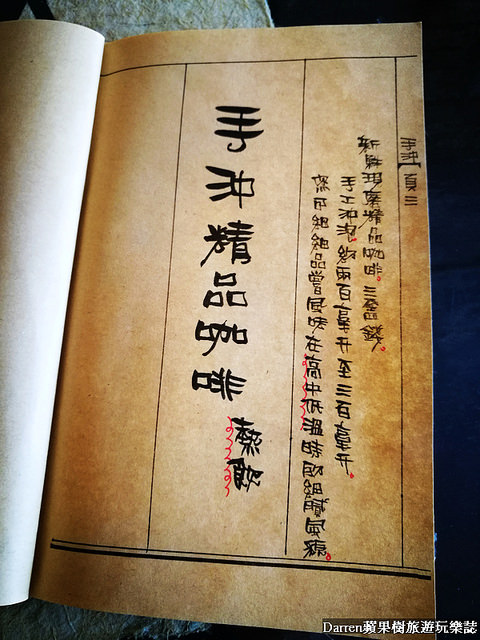 手沖 頁三
新鮮現磨精品咖啡。三 錢。
手工沖泡。約兩百毫升至三百毫升。
細細品嘗風味在高中低溫時的細膩風貌。
手沖精品咖啡 熱飲
Darren蘋果樹旅遊玩樂誌